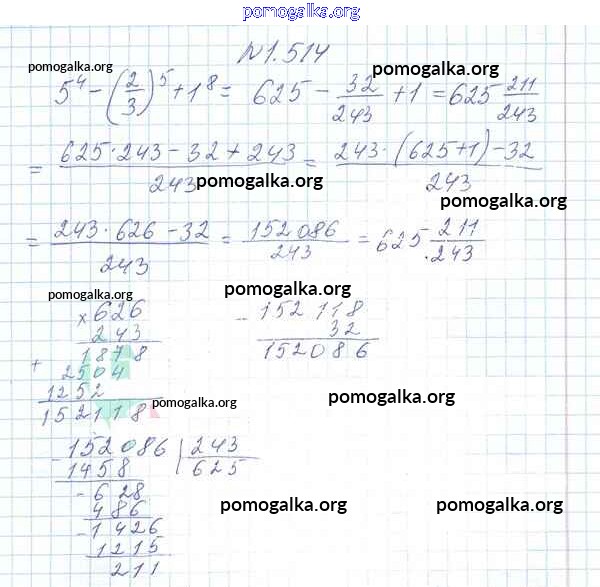 pomogalka.org
№1.514
pomogalka.org pomogalka.org
5⁴ − (2/3)⁵ + 1⁸ = 625 − 32/243 + 1 = 625 211/243
= (625·243 − 32 + 243)/243 = (243·(625+1) − 32)/243
pomogalka.org pomogalka.org
= (243·626 − 32)/243 = 152086/243 = 625 211/243
pomogalka.org pomogalka.org
× 626 − 152 118
243 32
1878 152086
+ 2504
1252
pomogalka.org pomogalka.org
152118
− 152086 | 243
1458 625
− 628
486
pomogalka.org pomogalka.org
− 1426
1215
211